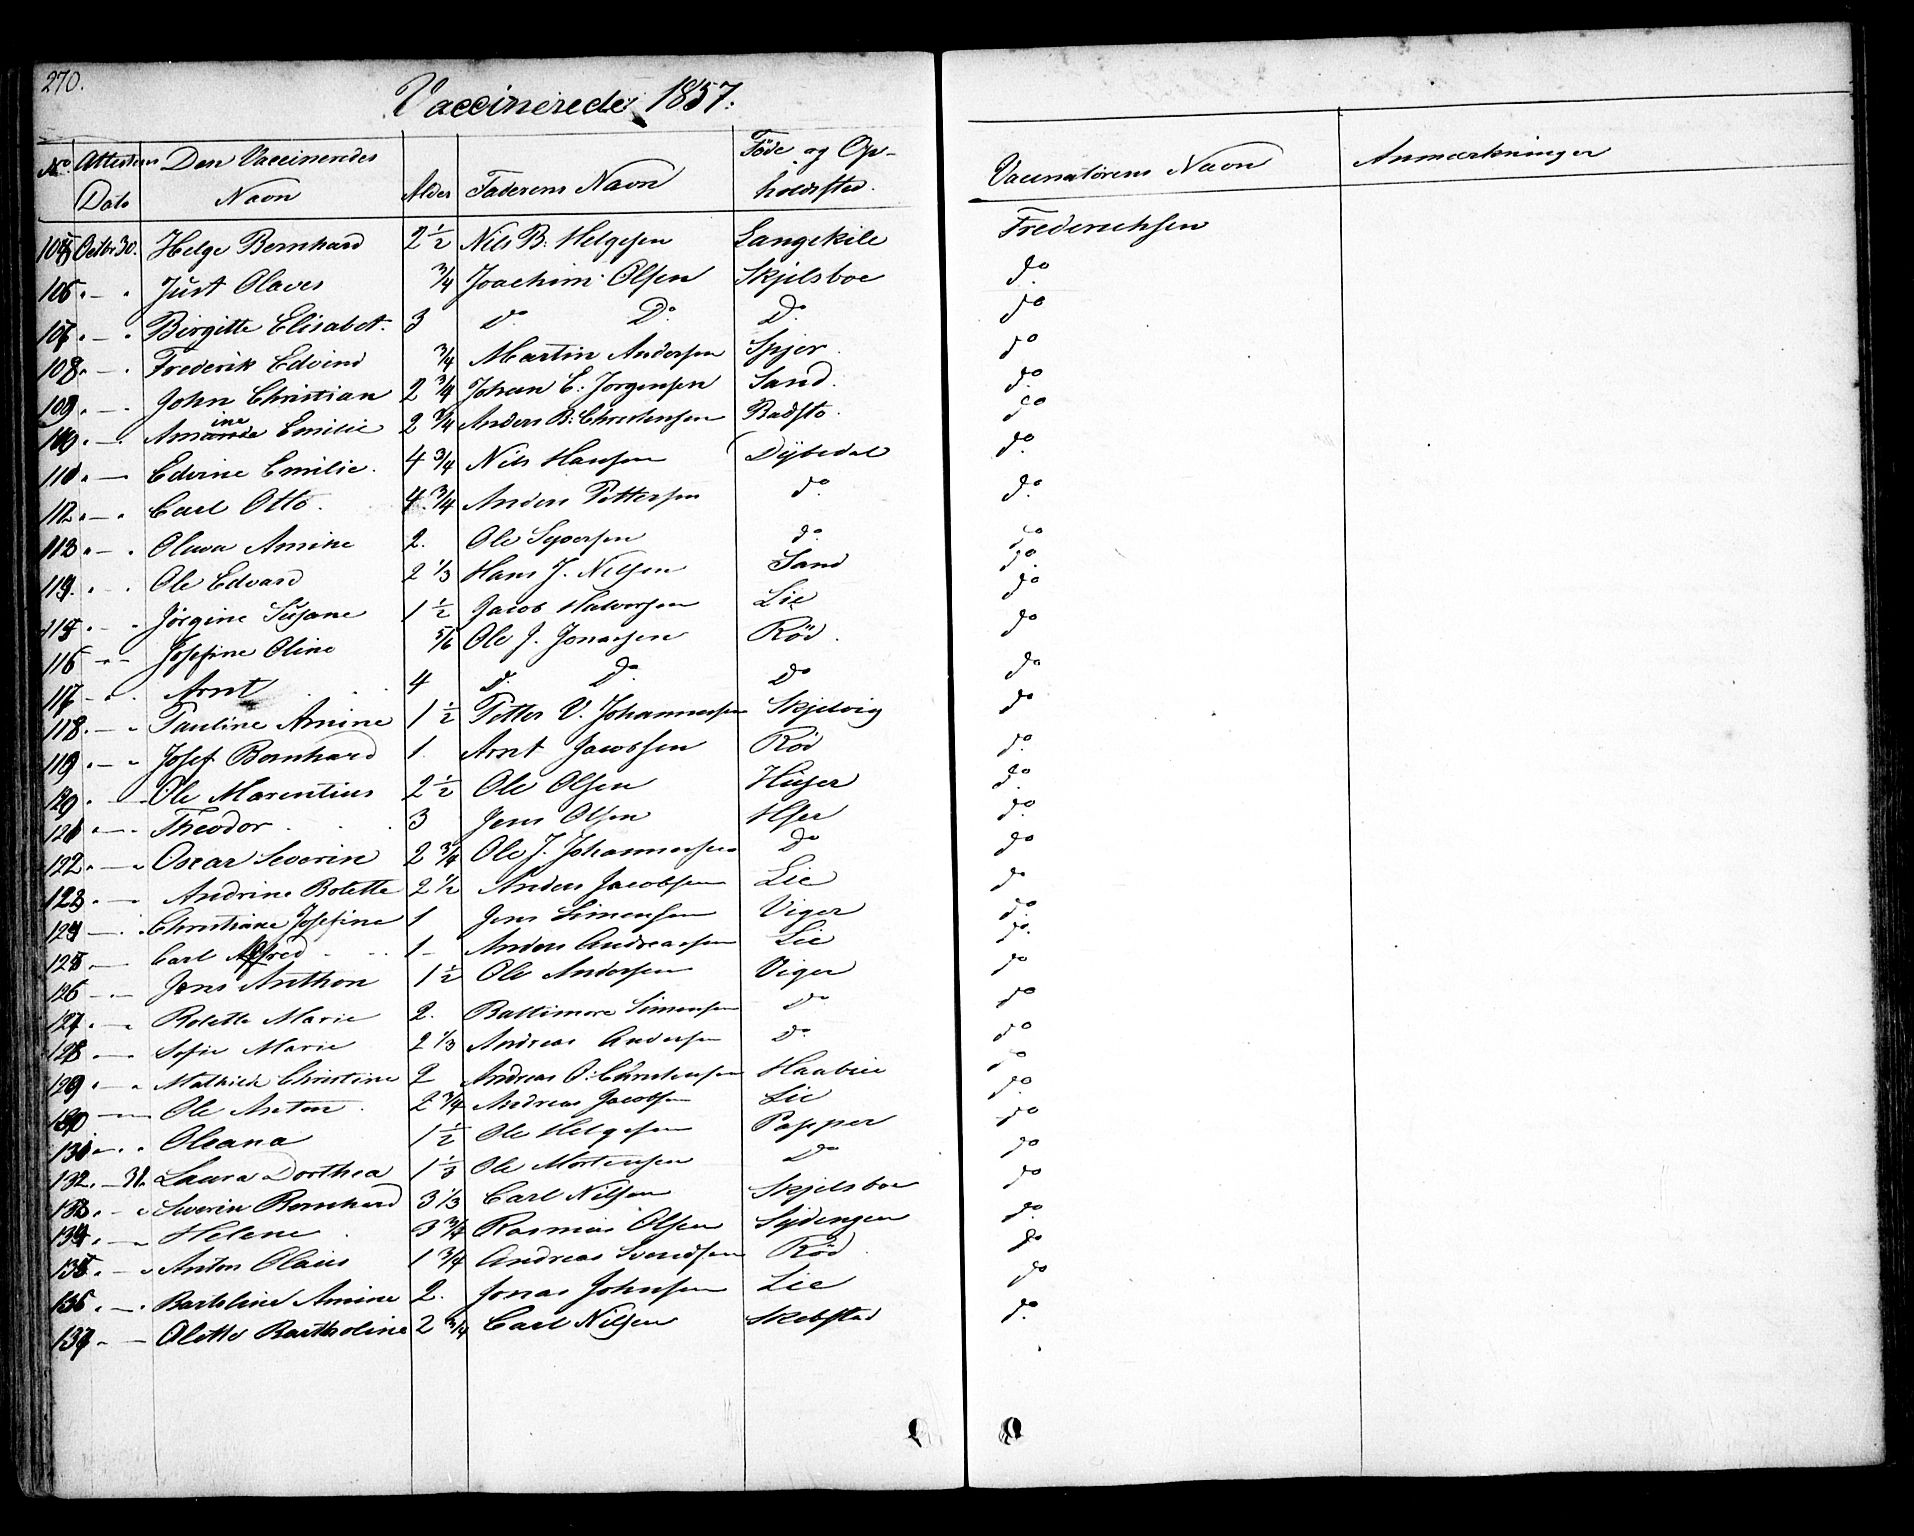 270.
Vaccinerede 1857.
No Attestens Dato Den Vaccineredes Navn Alder Faderens Navn Føde og Opholdssted. Vaccinatørens Navn Anmærkninger
105 Octbr. 30. Helge Bernhard 2 1/2 Nils B. Helgesen Langekile Frederichsen
106 " — " Just Olaves 3/4 Joachim Olsen Skjelsboe do
107 " — " Birgitte Elisabet. 3 do Do Do do
108 " — " Frederik Edvind 3/4 Martin Andersen Spjer do
109 " — " John Christian 2 3/4 Johan E. Jörgensen Sand. do
110 " — " Amanda ine Emilie 2 3/4 Anders B. Christensen Badstø. do
111 " — Edvine Emilie. 4 3/4 Nils Hansen Dybedal do
112 " — " Carl Otto. 4 3/4 Anders Pettersen do do
113 " — " Olava Amine 2. Ole Syversen do do
114. " — " Ole Edvard 2 1/3 Hans J. Nilsen Sand do
115 " — " Jörgine Susane 1 1/2 Jacob Halvorsen Lie do
116 " — " Josefine Oline 5/6 Ole J. Jonassen Röd. do
117 — " . Arnt 4 do Do Do do
118. — " Pauline Amine 1 1/2 Petter V. Johannessen Skjelvig do
119 " — " Josef Bernhard 1. Arnt Jacobsen Röd do
120 " — Ole Marentius 2 1/2 Ole Olsen Huser do
121 " — " Theodor 3 Jens Olsen do
122. " — " Oscar Severin 2 3/4 Ole J. Johannessen Do do
123 " — " Andrine Bolette 2 1/2 Anders Jacobsen Lie do
124 — " Christiane Josefine 1 Jens Simensen Viger do
125 " — Carl Alfred 1 — Anders Andreassen Lie do
126 " — " Jens Anthon 1 1/2 Ole Andersen Viger do
127 " — " Bolette Marie 2. Baltimore Simensen Do do
128 " — " Sofie Marie 2 1/3 Andreas Andersen do do
129 " — " Mathilde Christine 2 Andreas O. Christensen do
130 " — " Ole Anton. 2 3/4 Andreas Jacobsen Lie do
131 " — " . Oleana 1 1/2 Ole Helgesen Papper do
132. — 31. Laura Dorthea 1 1/3 Ole Mortensen Do do
133. — " Severin Bernhard 3 1/3 Carl Nilsen Skjelsboe do
134 " — " Helene 3 3/4 Rasmus Olsen Sydengen do
135 " — " Anton Olaus 1 3/4 Andreas Svendsen Röd do
136 " — " Bartoline Amine 2. Jonas Johnsen Lie do
137 " — Olette Bartholine 2 3/4 Carl Nilsen Skebstad do